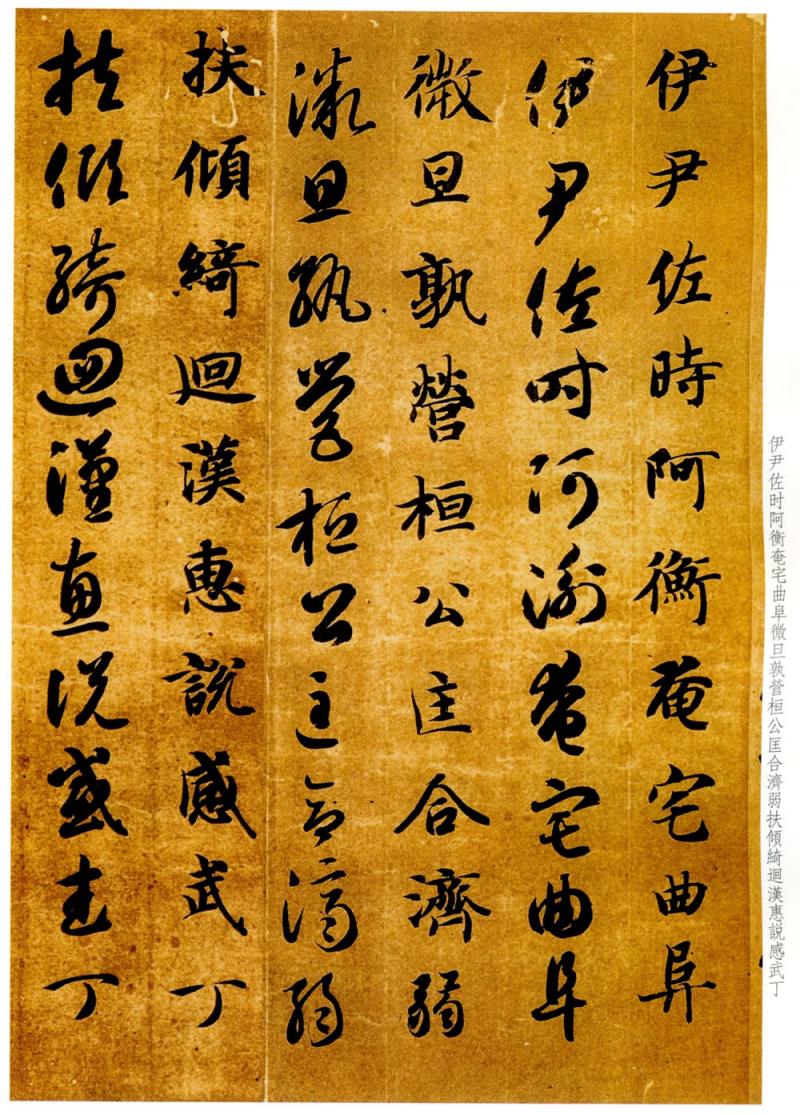 伊尹佐时阿衡奄宅曲阜微旦孰營桓公匡合濟弱扶傾綺迴漢惠説感武丁
伊尹佐時阿衡奄宅曲阜
伊尹佐時阿衡奄宅曲阜
微旦孰營桓公匡合濟弱
微旦孰營桓公匡合濟弱
扶傾綺迴漢惠説感武丁
扶傾綺迴漢惠説感武丁